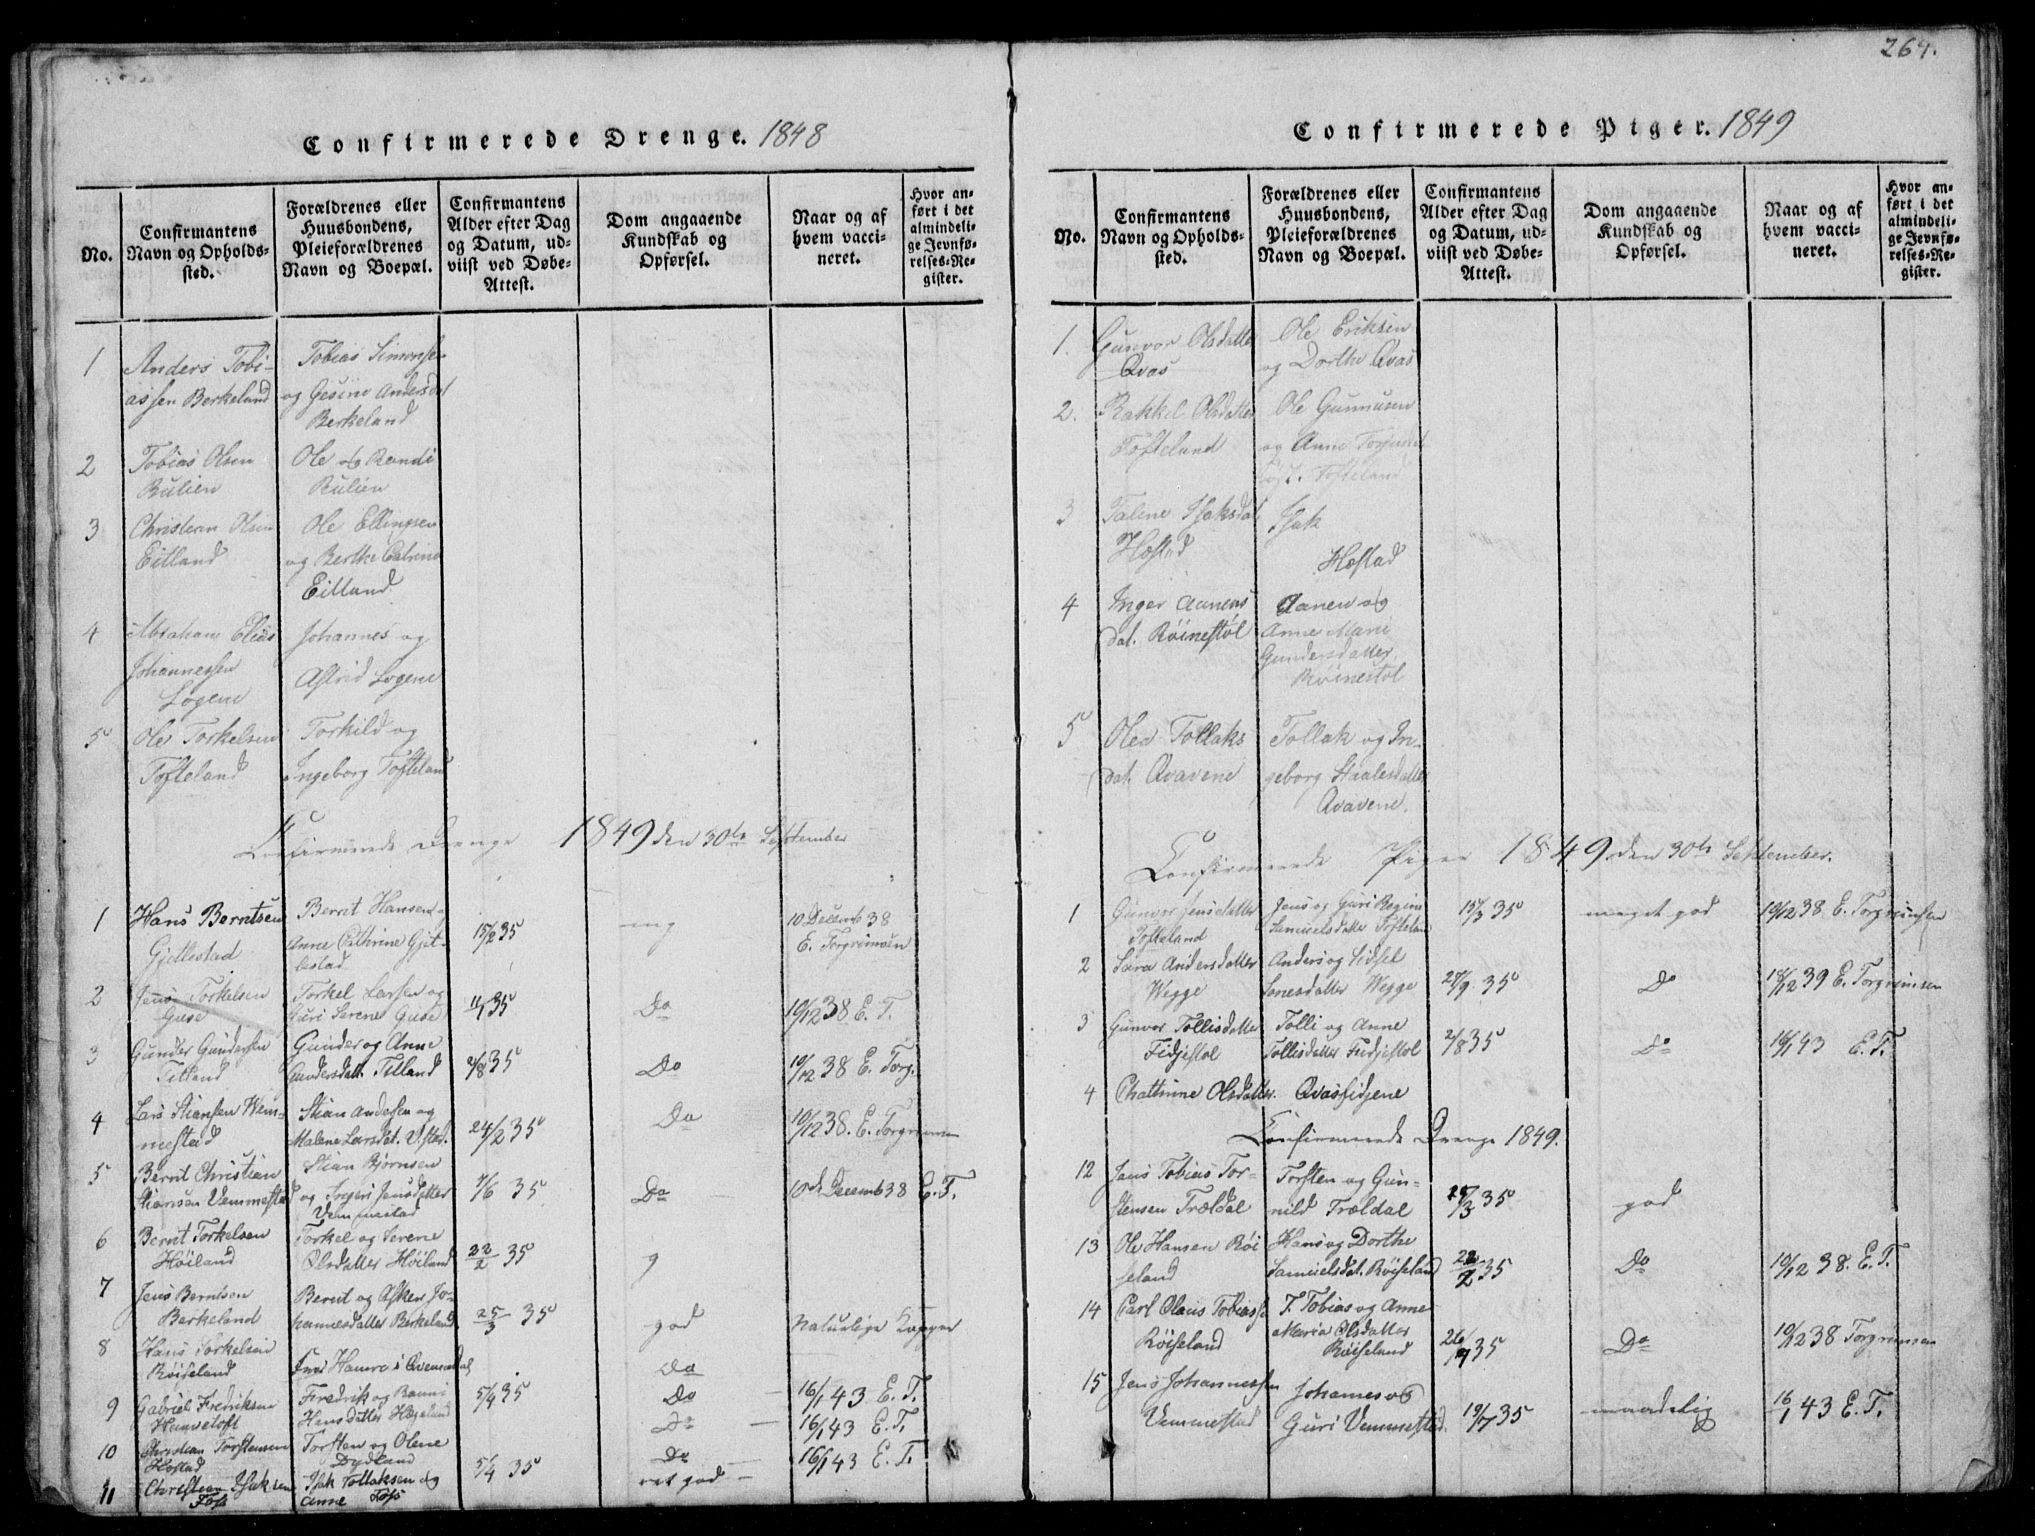 264.
Confirmerede Drenge. 1848
No.
Confirmantens
Navn og Opholds-
sted.
Forældrenes eller
Huusbondens,
Pleieforældrenes
Navn og Boepæl.
Confirmantens
Alder efter Dag
og Datum, ud-
viist ved Døbe-
Attest.
Dom angaaende
Kundskab og
Opførsel.
Naar og af
hvem vacci-
neret.
Hvor an-
ført i det
almindeli-
ge Jevnfø-
relses-Re-
gister.
1
Anders Tobi-
assen Berkeland
Tobias Simonsen
og Gesine Andersdat
Berkeland
2
Tobias Olsen
Rulien
Ole og Randi
Rulien
3
Christian Olsen
Eitland
Ole Ellingsen
og Berthe Catrine
Eitland
4
Abraham Elias
Johannessen
Logene
Johannes og
Astrid Logene
5
Ole Torkelsen
Tofteland
Torkild og
Ingeborg Tofteland
Confirmerede Drenge 1849 den 30te September
1
Hans Berntsen
Gjellestad
Bernt Hansen og
Anne Cathrine Gjel-
lestad
15/2 35
mg
10 Decemb 38
E. Torgrimsen
2
Jens Torkelsen
Guse
Torkel Larsen og
Siri Serene Guse
11/1 35
Do
10/12 38 E. T.
3
Gunder Gundersen
Titland
Gunder og Anne
Gundersdatt. Titland
2/8 35
Do
10/12 38 E. Torg.
4
Lars Stiansen Wem-
mestad
Stian Andersen og
Malene Larsdat. V.stad.
24/2 35
Do
10/12 38. E. Torgrimsen
5
Bernt Christian
Stiansen Vemmestad
Stian Bjørnsen
og Ingeri Jensdatter
Vemmestad
7/6 35
Do
10d. Decemb 38 E. T.
6
Bernt Torkelsen
Höiland
Torkel og Serene
Olsdatter Höiland
22/2 35
g
7
Jens Berntsen
Berkeland
Bernt og Asken Jo-
hannesdatter Berkeland
25/3 35
god
Naturlige Kopper
8
Hans Torkelsen
Röiseland
Do
9
Gabriel Fredriksen
Hauvetoft
Fredrik og Ranni
Hansdatter Hægeland
5/9 35
Do
16/1 43 E. T.
10
Christian Torstensen
Hostad
Torsten og Olene
Dydland
Do
16/1 43 E. T.
11
Christian Isaksen
Foss
Isak Tollaksen og
Anne Foss
5/4 35
Do
ret god
16/1 43 E. T.
Confirmerede Piger. 1849
No.
Confirmantens
Navn og Opholds-
sted.
Forældrenes eller
Huusbondens,
Pleieforældrenes
Navn og Boepæl.
Confirmantens
Alder efter Dag
og Datum, ud-
viist ved Døbe-
Attest.
Dom angaaende
Kundskab og
Opførsel.
Naar og af
hvem vacci-
neret.
Hvor an-
ført i det
almindeli-
ge Jevnfø-
relses-Re-
gister.
1.
Gunvor Olsdatter
Qvas
Ole Eriksen
og Dorthe Qvas
2.
Rakkel Olsdatter
Tofteland
Ole Gunnusen
og Anne
Tofteland
3
Taline Isaksdat
Hostad
Isak
Hostad
4
Inger Aanens
dat. Röinestöl
Aanen og
Anne Marie
Gundersdatter
Röinestöl
5
Olea Tollaks
dat. Qvavene
Tollak og In-
geborg Staalesdatter
Qvavene.
Confirmerede Piger 1849 den 30te September.
1
Gunvor Jensdatter
Tofteland
Jens og Guri Regine
Samuelsdatter Tofteland
15/3 35
meget god
10/12 38 E. Torgrimsen
2
Sara Andersdatter
Wegge
Anders og Sidsel
Wegge
27/9 35
Do
18/12 39 E. Torgrimsen
3
Gunvor Tollisdatter
Fidjestöl
Tolli og Anne
Tollisdatter Fidjestöl
2/8 35
Do
16/1 43 E. T.
4
Chathrine Olsdatter. Qvasfidjene
Confirmerede Drenge 1849.
12
Jens Tobias Tor-
stensen Trældal
Torsten og Gun-
nild Trældal
35
god
13
Ole Hansen Röi
seland
Hans og Dorthe
Samuelsdat. Röiseland
22/2 35
Do
10/12 38. E. T.
14
Carl Olaus Tobiassen
Röiseland
T. Tobias og Anne
Maria Olsdatter
Röiseland
26/9 35
Do
10/12 38 Torgrimsen
15
Jens Johannessen
Vemmestad
Johannes og
Guri Vemmestad.
19/7 35
maadelig
16/1 43 E. T.